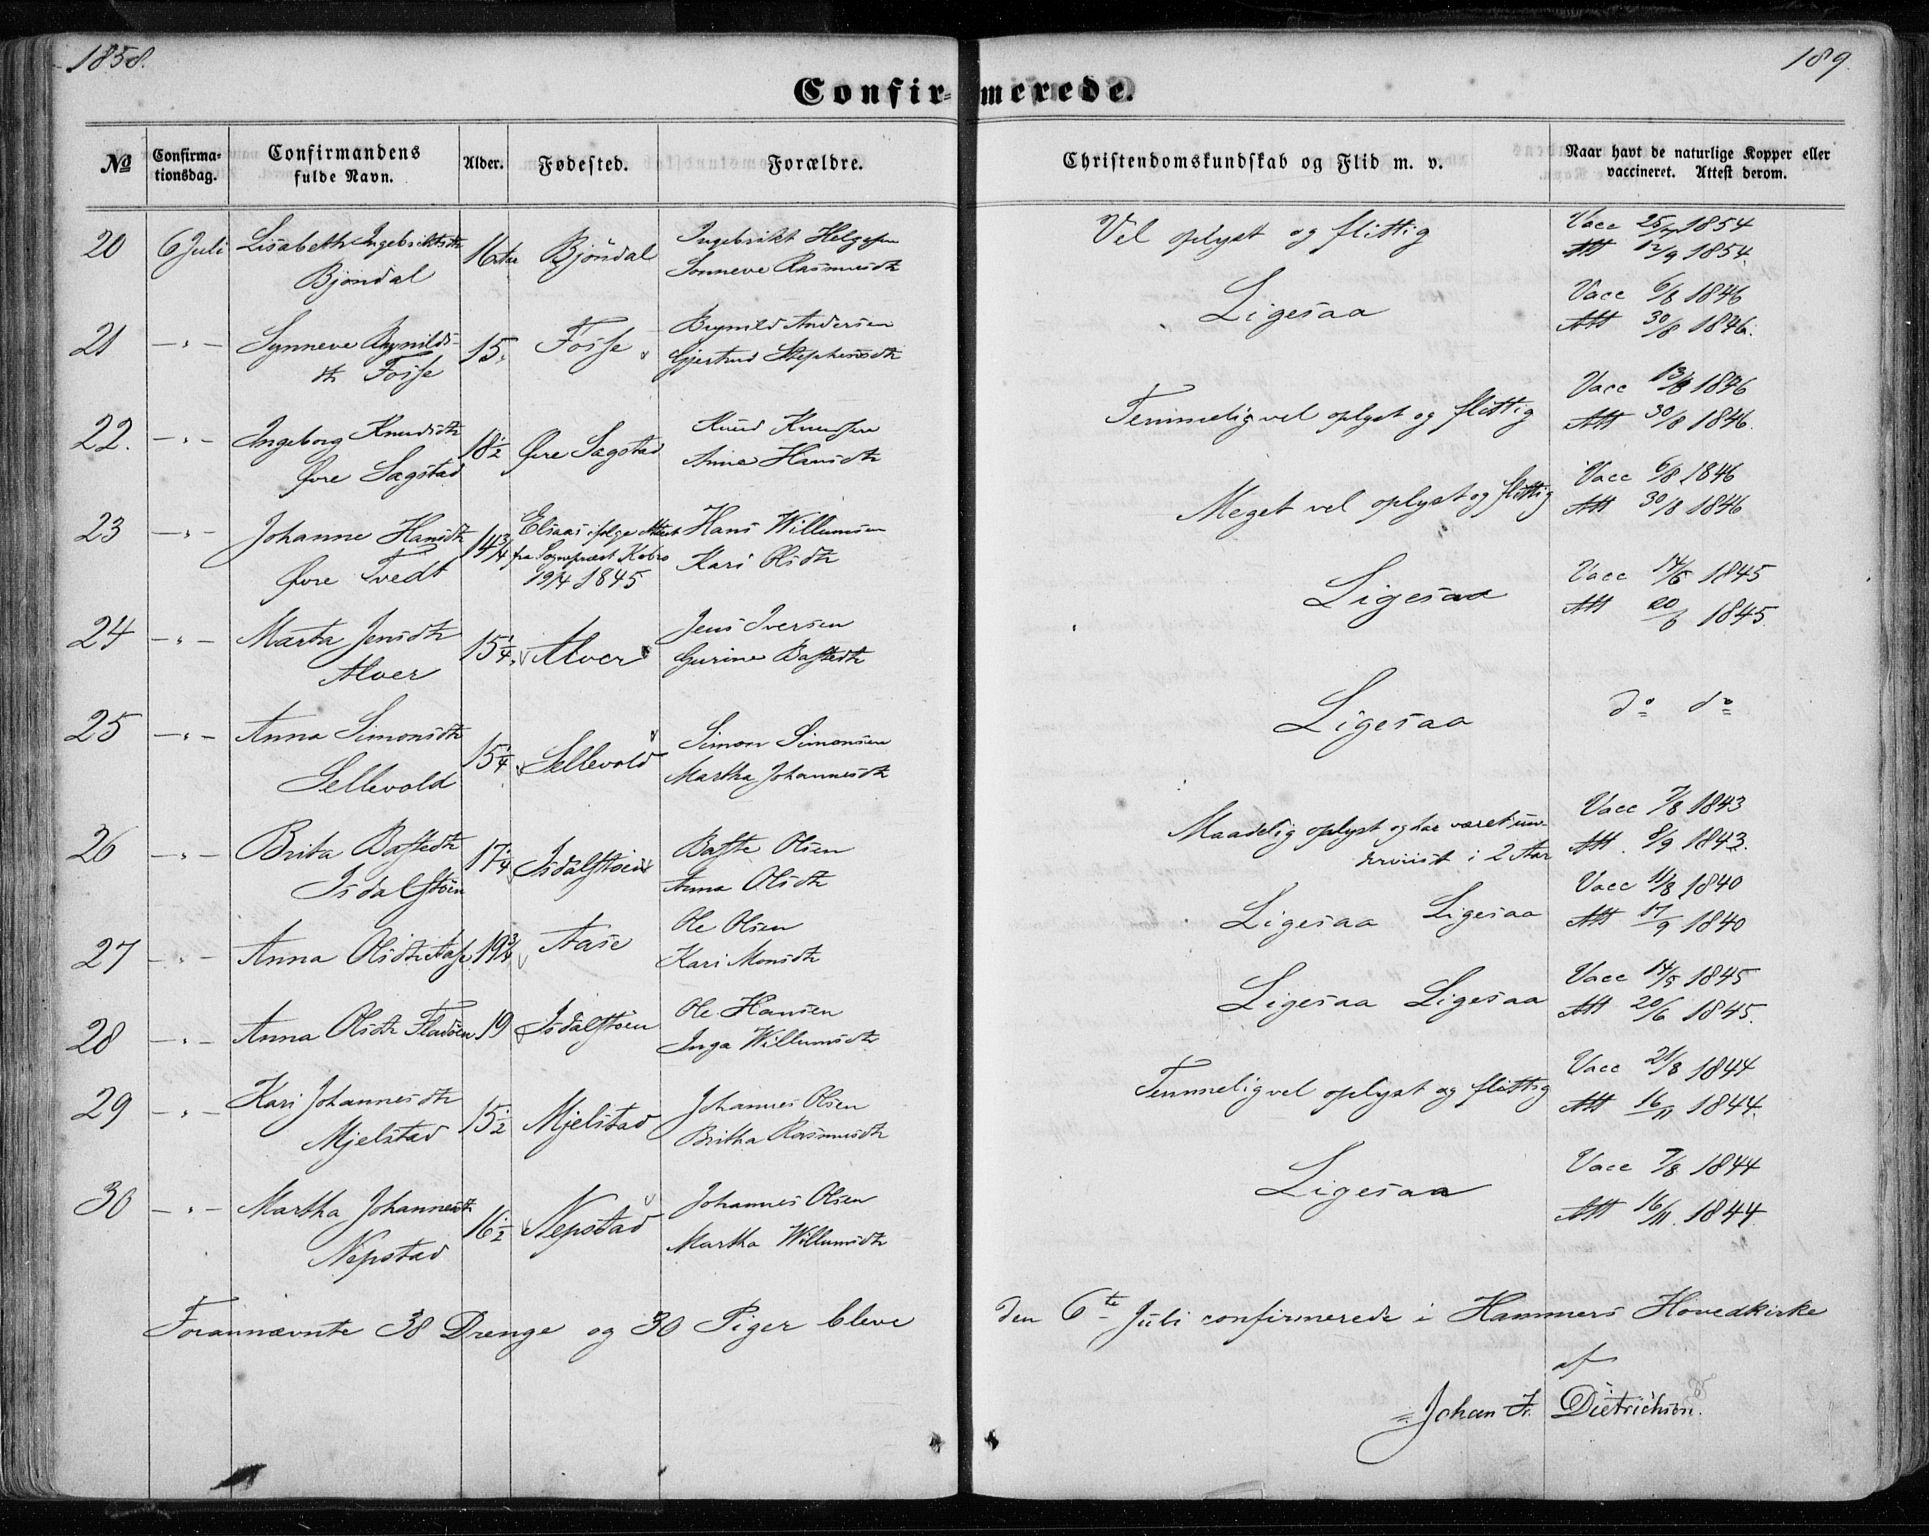 1858.
189.
Confir-merede.
No
Confirma-
tionsdag.
Confirmandens
fulde Navn.
Alder.
Fødested.
Forældre.
Christendomskundskab og Flid m. v.
Naar havt de naturlige Kopper eller
vaccineret. Attest derom.
20 6 Juli Lisabeth Ingebriktsdtr Bjöndal Ingebrikt Helgesen Vel oplyst og flittig Vacc 1854
Bjöndal Sonneve Rasmusdtr Att 12/9 1854.
21 -"- Synneve Brynilds- 15. Fosse Brynild Andersen Ligesaa Vacc 6/8 1846
dtr Fosse Gjertrud Stephensdtr Att 30/8 1846.
22. -"- Ingeborg Knudsdtr 18½ Øvre Sagstad Knud Knudsen Temmelig vel oplyst og flittig Vacc 13/8 1846
Øvre Sagstad Anna Hansdtr Att 30/8 1846.
23 -"- Johanne Hansdtr 14¾ Elsaas ifølge Attest Hans Willumsen Meget vel oplyst og flittig Vacc 6/8 1846
Øvre Tvedt fra Sognepræst Kobro Kari Olsdtr Att 30/8 1846
19/4 1845
24 -"- Marta Jensdtr 15¼ Alver Jens Iversen Ligesaa Vacc 14/5 1845
Alver Gurine Bastedtr Att 20/6 1845.
25 -"- Anna Simonsdtr 15¼ Sellevold Simon Simonsen Ligesaa do do
Sellevold Martha Johannesdtr
26 -"- Brita Bastedtr 17¼ Isdalstøen Baste Olsen Maadelig oplyst og har været un- Vacc 7/8 1843
Isdalstøen Anna Olsdtr derviist i 2 Aar Att. 8/9 1843.
27 -"- Anna Olsdtr Aase 19¾ Aase Ole Olsen Ligesaa Ligesaa Vacc 11/8 1840
Kari Monsdtr Att 17/9 1840
28 -"- Anna Olsdtr Fladøen 19 Isdalstøen Ole Hansen Ligesaa Ligesaa Vacc 14/5 1845
Inga Willumsdtr Att 20/6 1845.
29 -"- Kari Johannesdtr 15½ Mjelstad Johannes Olsen Temmelig vel oplyst og flittig Vacc 21/8 1844
Mjelstad Britha Rasmusdtr Att 16/11 1844.
30 -"- Martha Johannesdtr 16½ Nepstad Johannes Olsen Ligesaa Vacc 7/8 1844
Nepstad Martha Willumsdtr Att 16/11. 1844.
Forannævnte 38 Drenge og 30 Piger bleve den 6te Juli confirmerede i Hammers Hovedkirke
af
Johan Fr. Dietrichson.